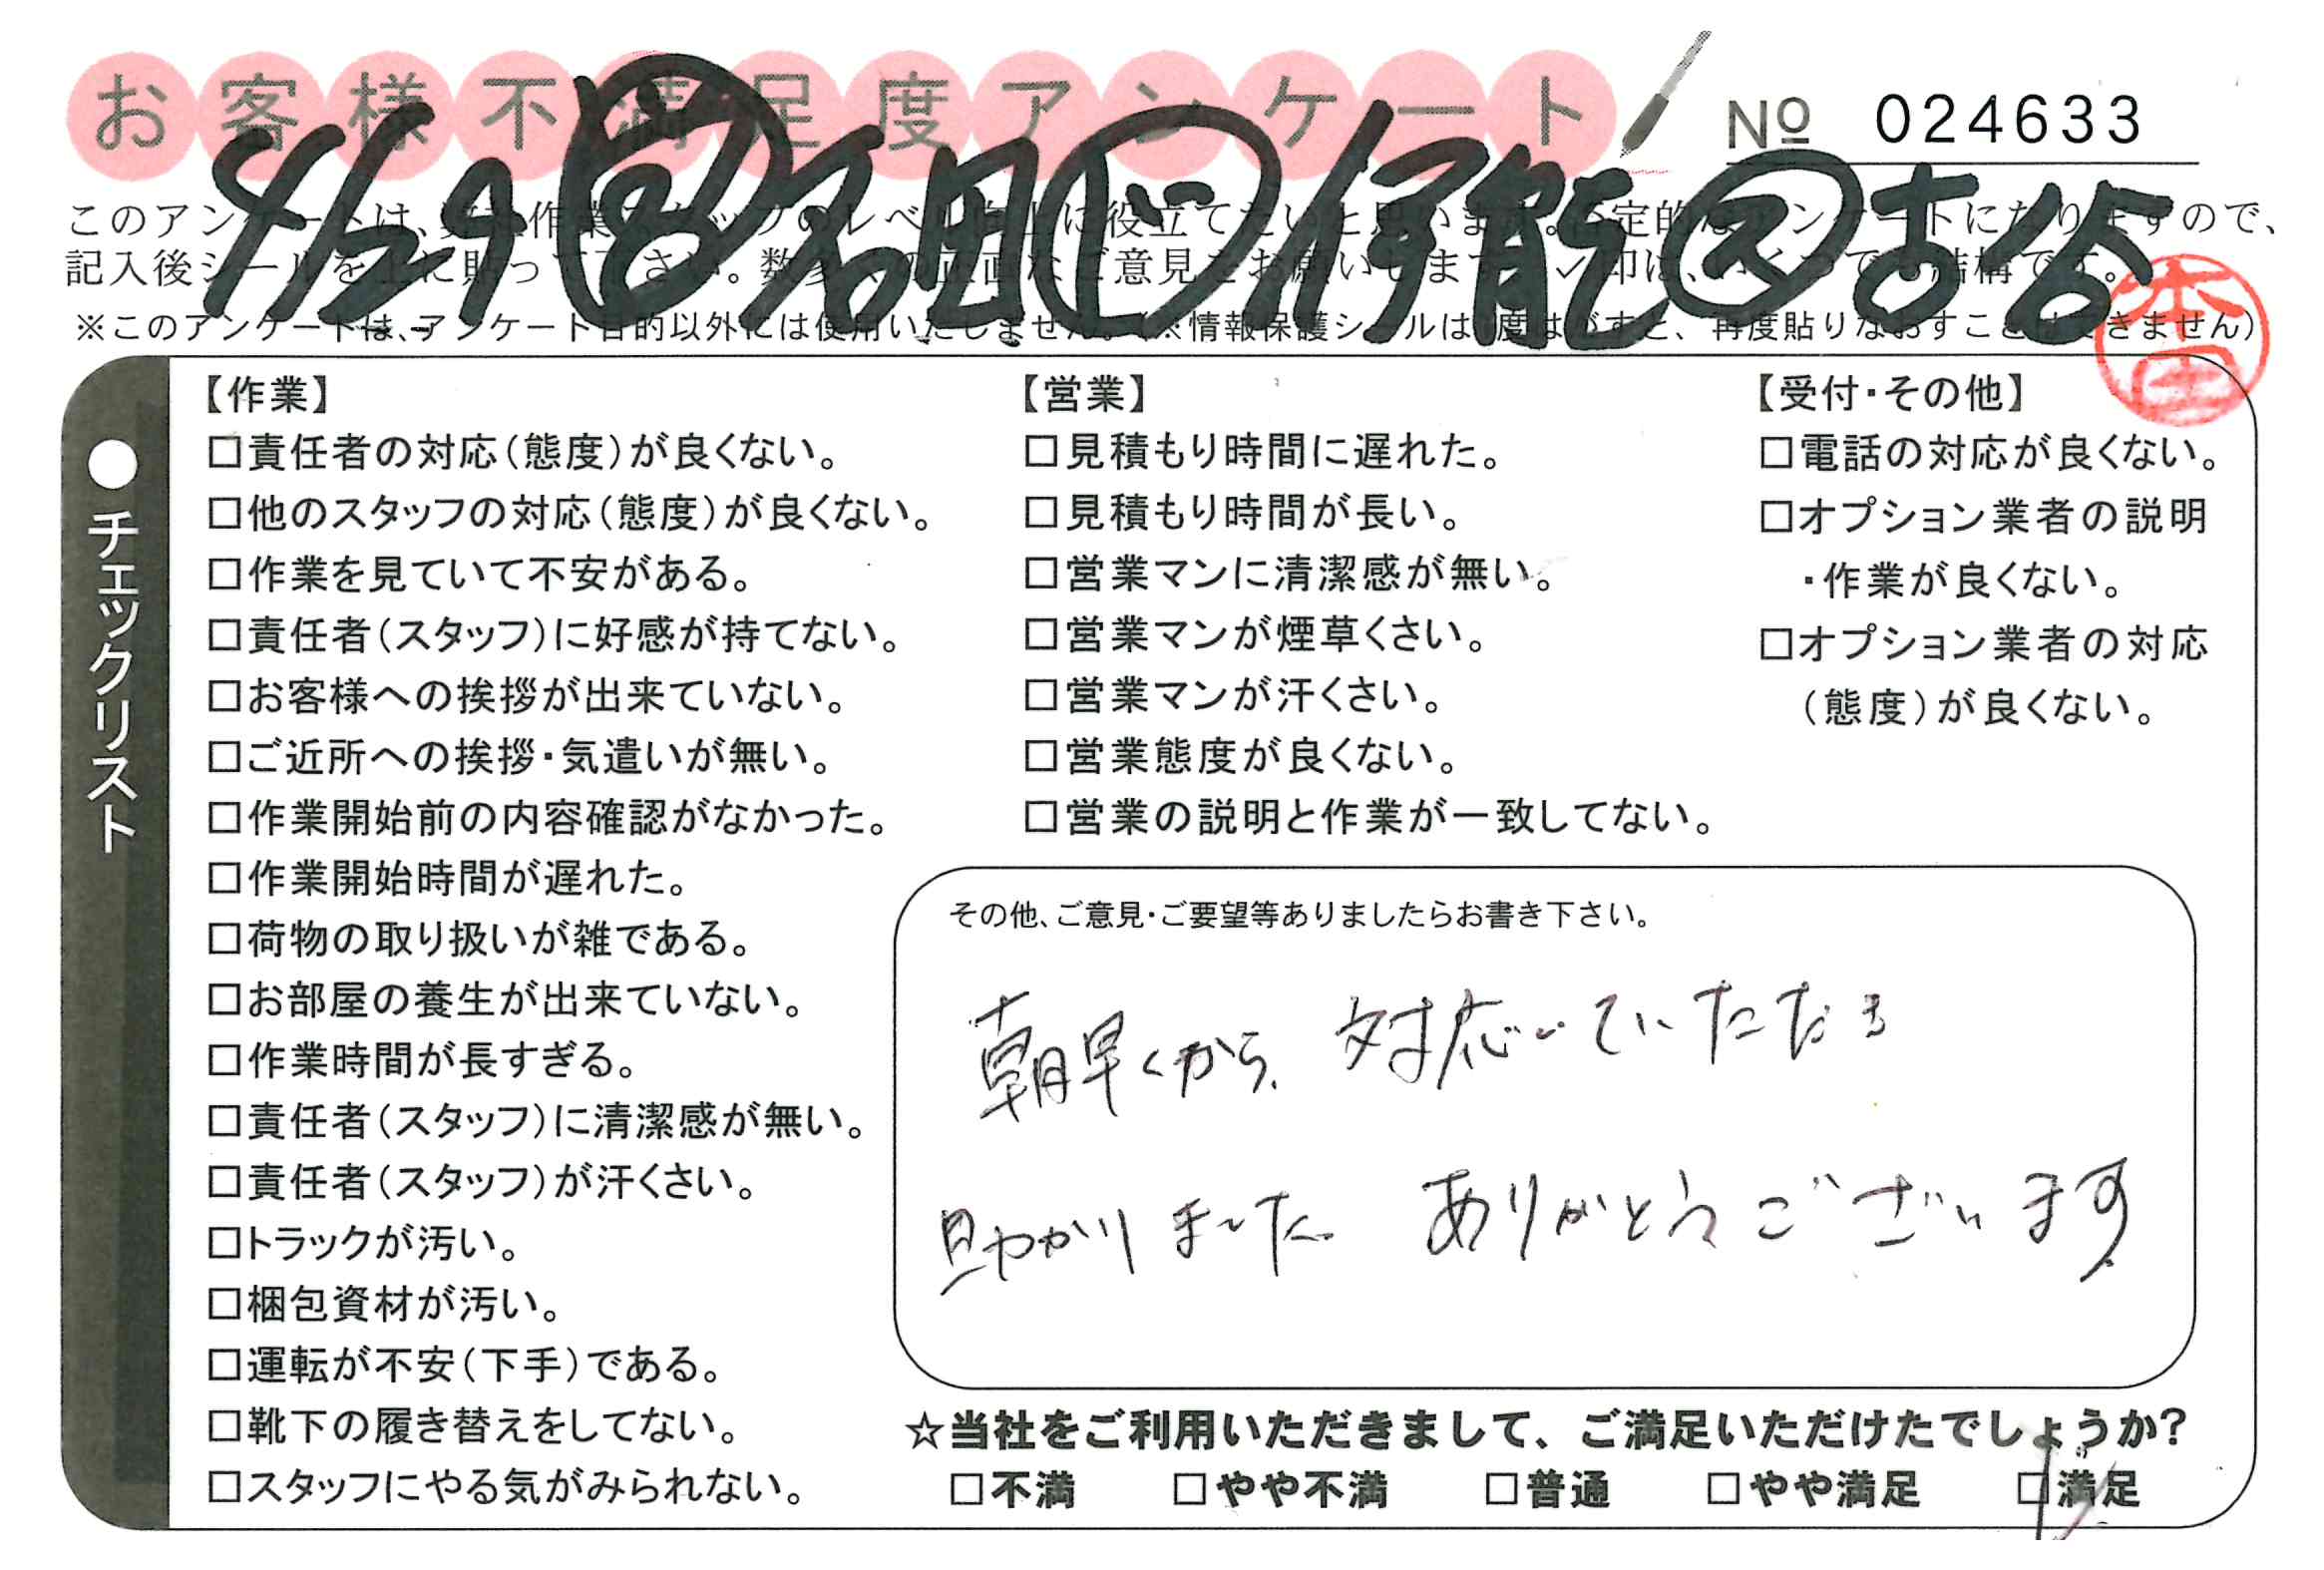 お客様不満足度アンケート
№ 024633
4/29 営 石田 ビ 伊能 ス 古谷
このアンケートは、
記入後シールを上に貼って下さい。
※このアンケートは、アンケート目的以外には使用いたしません。(※情報保護シールは1度はがすと、再度貼りなおすことはできません)
●チェックリスト
【作業】
□責任者の対応(態度)が良くない。
□他のスタッフの対応(態度)が良くない。
□作業を見ていて不安がある。
□責任者(スタッフ)に好感が持てない。
□お客様への挨拶が出来ていない。
□ご近所への挨拶・気遣いが無い。
□作業開始前の内容確認がなかった。
□作業開始時間が遅れた。
□荷物の取り扱いが雑である。
□お部屋の養生が出来ていない。
□作業時間が長すぎる。
□責任者(スタッフ)に清潔感が無い。
□責任者(スタッフ)が汗くさい。
□トラックが汚い。
□梱包資材が汚い。
□運転が不安(下手)である。
□靴下の履き替えをしてない。
□スタッフにやる気がみられない。
【営業】
□見積もり時間に遅れた。
□見積もり時間が長い。
□営業マンに清潔感が無い。
□営業マンが煙草くさい。
□営業マンが汗くさい。
□営業態度が良くない。
□営業の説明と作業が一致してない。
【受付・その他】
□電話の対応が良くない。
□オプション業者の説明
・作業が良くない。
□オプション業者の対応
(態度)が良くない。
その他、ご意見・ご要望等ありましたらお書き下さい。
朝早くから、対応していただき
助かりました。ありがとうございます
☆当社をご利用いただきまして、ご満足いただけたでしょうか?
□不満 □やや不満 □普通 □やや満足 □満足